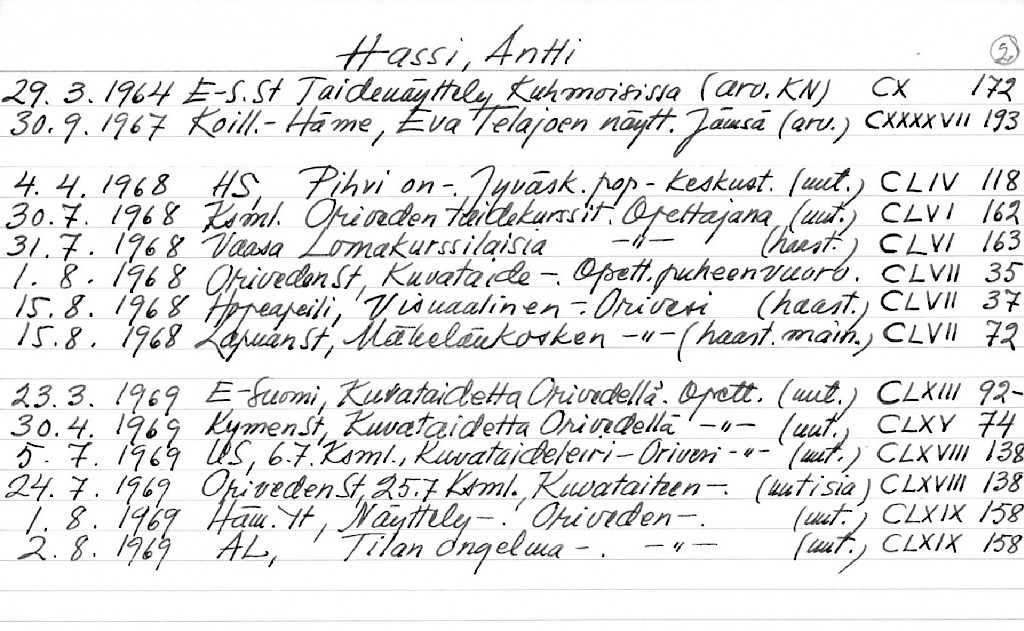 Hassi, Antti 2.
29. 3. 1964 E-S.St Taidenäyttely Kuhmoisissa (arv. KN) CX 172
30. 9. 1967 Koill.- Häme, Eva Telajoen näytt. Jämsä (arv.) CXXXXVII 193
4. 4. 1968 HS, Pihvi on -. Jyväsk. pop - keskust. (uut.) CLIV 118
30. 7. 1968 Ksml. Oriveden taidekurssit. Opettajana (uut.) CLVI 162
31. 7. 1968 Vaasa Lomakurssilaisia -"- (haast.) CLVI 163
1. 8. 1968 OrivedenSt, Kuvataide -. Opett. puheenvuoro. CLVII 35
15. 8. 1968 Hopeapeili, Visuaalinen -. Orivesi (haast.) CLVII 37
15. 8. 1968 LapuanSt, Mäkelänkosken -"- (haast. main.) CLVII 72
23. 3. 1969 E-Suomi, Kuvataidetta Orivedellä. Opett. (uut.) CLXIII 92-
30. 4. 1969 KymenSt, Kuvataidetta Orivedellä -"- (uut.) CLXV 74
5. 7. 1969 US, 6.7. Ksml., Kuvataideleiri - Orivesi -"- (uut.) CLXVIII 138
24. 7. 1969 OrivedenSt, 25.7 Ksml., Kuvataiteen -. (uutisia) CLXVIII 138
1. 8. 1969 Häm. Yt, Näyttely -. Oriveden -. (uut.) CLXIX 158
2. 8. 1969 AL, Tilan ongelma -. -"- (uut.) CLXIX 158